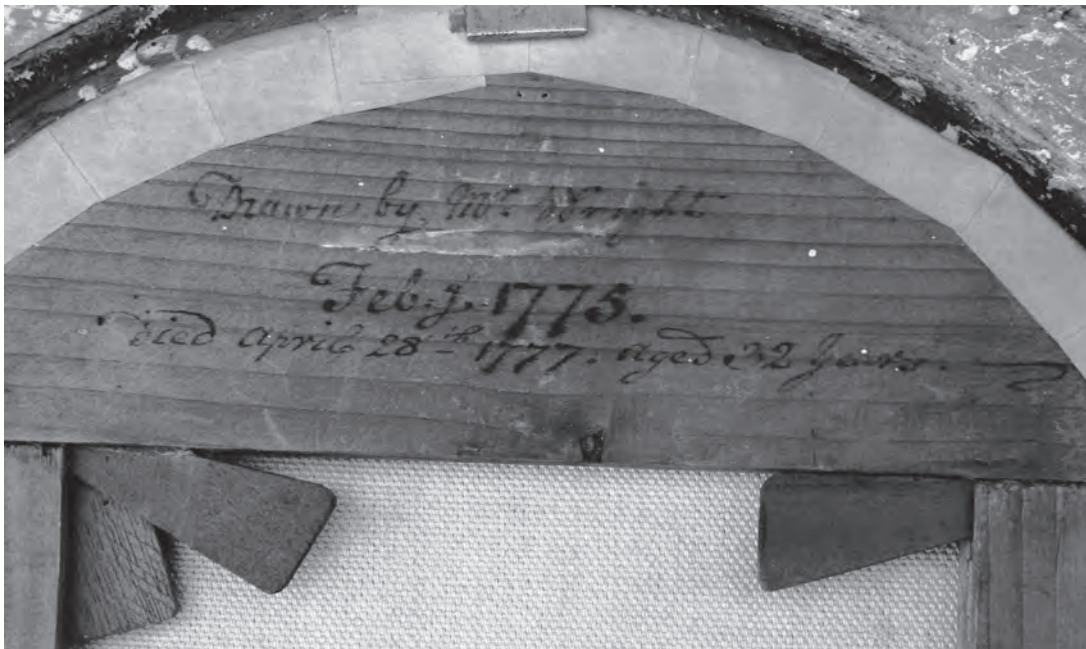 Drawn by Mr. Wright
Feb.y. 1775.
Died April 28th 1777. aged 32 Years.